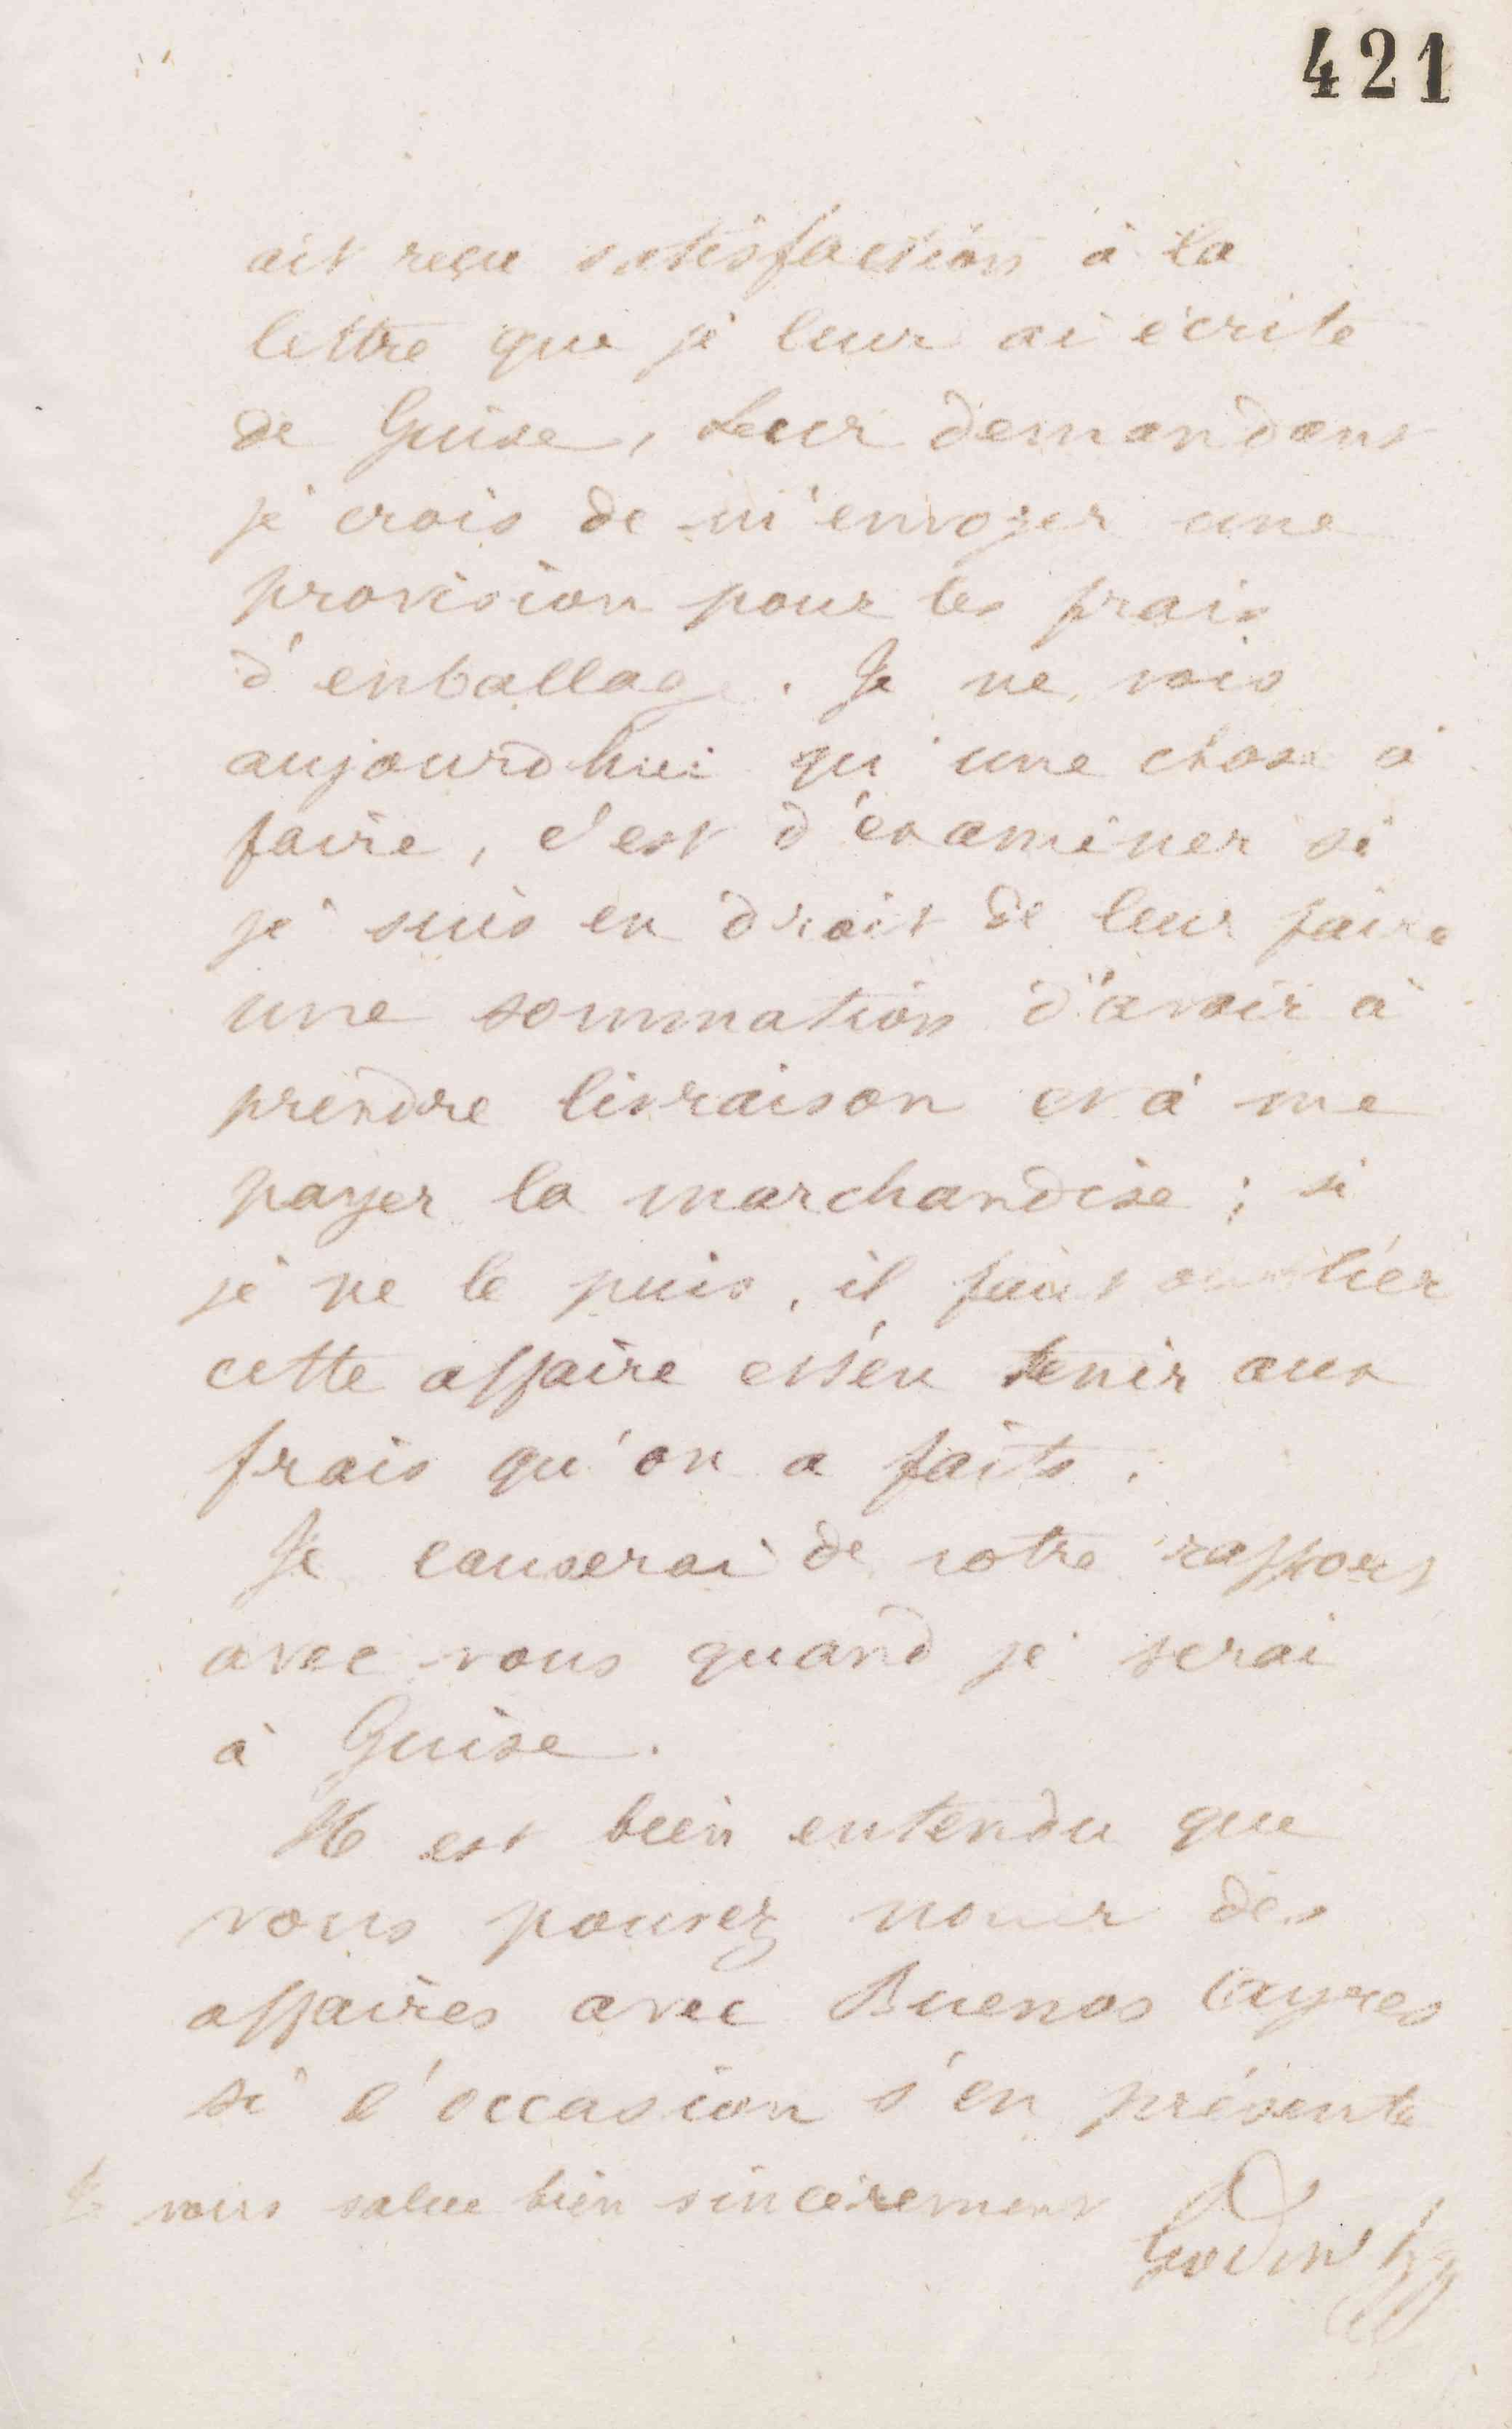 421
ait reçu satisfaction à la
lettre que je leur ai écrite
de Guise, leur demandant
je crois de m'envoyer une
provision pour les frais
d'enballage. Je ne vois
aujourd'hui qu'une chose à
faire, c'est d'examiner si
je suis en droit de leur faire
une sommation d'avoir à
prendre livraison et à me
payer la marchandise ; si
je ne le puis, il faut oublier
cette affaire et s'en tenir aux
frais qu'on a faits.
Je causerai de votre rapport
avec vous quand je serai
à Guise.
Il est bien entendu que
vous pouvez nouer des
affaires avec Buenos Ayres
si l'occasion s'en présente
Je vous salue bien sincèrement
Godin